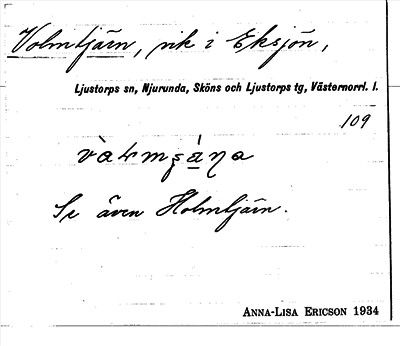 Volmtjärn, vik i Eksjön,
Ljustorps sn, Njurunda, Sköns och Ljustorps tg, Västernorrl. l.
109
Se även Holmtjärn.
ANNA-LISA ERICSON 1934